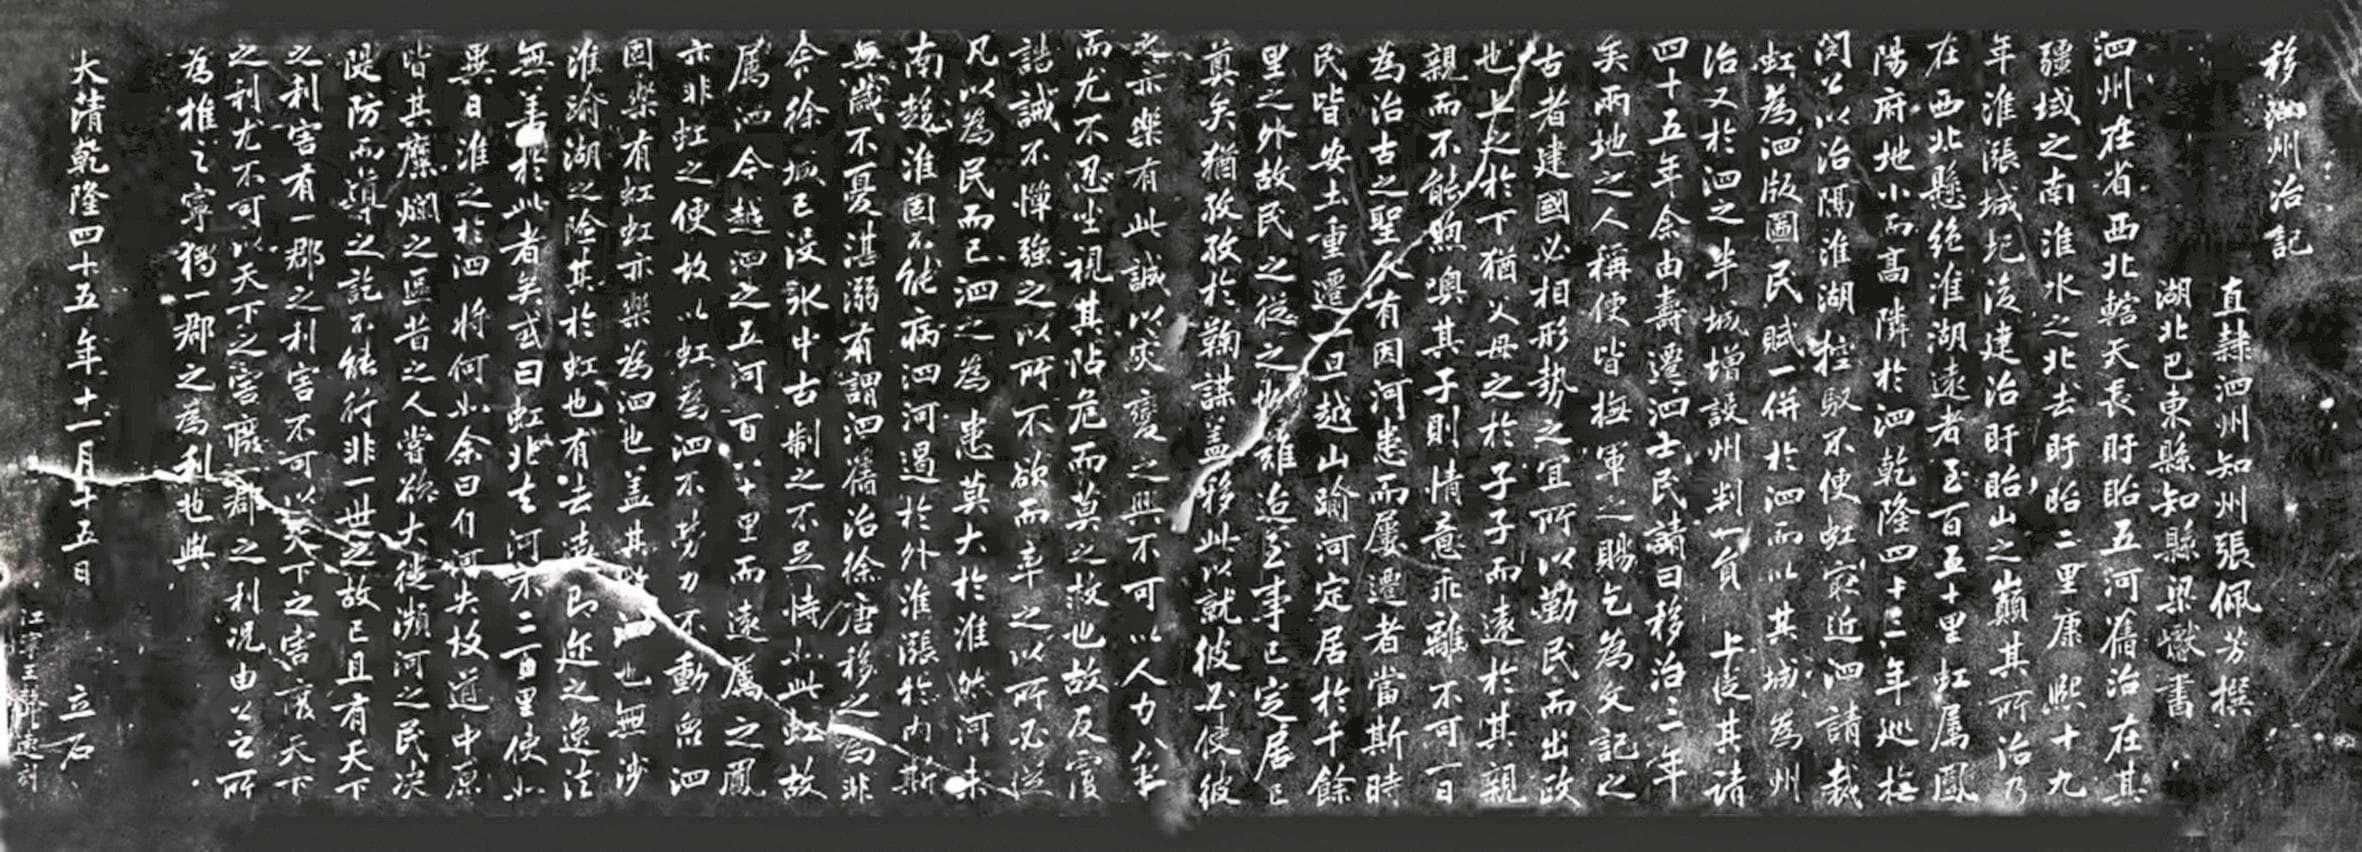 移泗州治記
直隸泗州知州張佩芳撰
湖北巴東縣知縣梁巘書
泗州在省西北轄天長盱眙五河舊治在其
疆域之南淮水之北去盱眙二里康熙十九
年淮漲城圮後建治盱眙山之巔其所治乃
在西北懸絕淮湖遠者至百五十里虹屬鳳
陽府地小而高隣於泗乾隆四十二年巡撫
閔公以治隔淮湖控馭不便虹最近泗請裁
虹為泗版圖民賦一併於泗而以其城為州
治又於泗之半城增設州判一員 上從其請
四十五年余由壽遷泗士民請曰移治三年
矣兩地之人稱便皆撫軍之賜乞為文記之
古者建國必相形勢之宜所以勤民而出政
也上之於下猶父母之於子子而遠於其親
親而不能煦嫗其子則情意乖離不可一日
為治古之聖人有因河患而屢遷者當斯時
民皆安土重遷一旦越山踰河定居於千餘
里之外故民之從之也雖迨至事已定居已
奠矣猶孜孜於鞠謀蓋移此以就彼必使彼
之亦樂有此誠以災變之興不可以人力爭
而尤不忍坐視其阽危而莫之故也故反覆
誥誡不憚強之以所不欲而率之以所必從
凡以為民而已泗之為患莫大於淮然河未
南趨淮固不能病泗河遏於外淮漲於內斯
無歲不憂湛溺有謂泗舊治徐唐移之為非
今徐城已沒水中古制之不足恃如此虹故
屬泗今越泗之五河百八十里而遠屬之鳳
亦非虹之便故以虹為泗不勞力不動眾泗
固樂有虹虹亦樂為泗也蓋其 也無涉
淮踰湖之險其於虹也有去遠即近之逸法
無善於此者矣或曰虹北去河不二百里使如
異日淮之於泗將何如余曰自河失故道中原
皆其糜爛之區昔之人嘗欲大徙瀕河之民決
隄防而導之訖不能行非一世之故已且有天下
之利害有一郡之利害不可以天下之害廢天下
之利尤不可以天下之害廢一郡之利況由公之所
為推之寧獨一郡之為利也與
大清乾隆四十五年十一月十五日 立石
江寧 刻